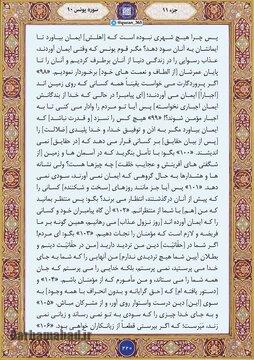 جزء ۱۱
سوره یونس ۱۰
پس چرا هیچ شهری نبوده است که [اهلش] ایمان بیاورد تا
ایمانشان به آنان سود دهد؟ مگر قوم یونس که وقتی ایمان آوردند،
عذاب رسوایی را در زندگی دنیا از آنان برطرف کردیم و آنان را تا
پایان عمرشان [از الطاف و نعمت های خود] برخوردار نمودیم. «۹۸»
اگر پروردگارت می خواست یقیناً همه کسانی که روی زمین اند
[اجباراً] ایمان می آوردند؛ [ای پیامبر! در حالی که خدا از بندگانش
ایمان اجباری نخواسته] پس آیا تو مردم را وادار می کنی تا به
اجبار مؤمن شوند؟! «۹۹» هیچ کس را نسزد [و قدرت نباشد] که
ایمان بیاورد مگر به اذن و توفیق خدا، و خدا پلیدی [ضلالت] را
[پس از بیان حقایق] بر کسانی قرار می دهد که [در حقایق] نمی
اندیشند. «۱۰۰» بگو: با تأمل بنگرید که در آسمان ها و زمین [از
شگفتی های آفرینش و عجایب خلقت] چه چیزها هست؟ ولی نشانه
ها و هشدارها به حال گروهی که ایمان نمی آورند، سودی نمی
دهد. «۱۰۱» پس آیا جز مانند روزهای [سخت و شکننده] کسانی را
که پیش از آنان درگذشتند، انتظار می برند؟ بگو: پس منتظر بمانید
که من [هم] با شما از منتظرانم. «۱۰۲» آن گاه پیامبران خود و کسانی
را که ایمان آورده اند [روز نزول عذاب] می رهانیم، همین گونه بر ما
فریضه و لازم است که مؤمنان را نجات دهیم. «۱۰۳» بگو: ای مردم!
اگر شما در [حقانیّت] دین من تردید دارید [من در حقانیّت دینم و
بطلان آیین شما هیچ تردیدی ندارم] من آنهایی را که شما به جای
خدا می پرستید، نمی پرستم، بلکه خدایی را می پرستم که جان
همه شما را می ستاند، و من مأمورم که از مؤمنان باشم. «۱۰۴» و
[دستور یافته ام] که [حق گرایانه و بدون انحراف با همه وجود] به
سوی [این] دین درست واستوار روی آور، و از مشرکان مباش. «۱۰۵»
و به جای خدا چیزی را که سودی به تو نمی رساند و زیانی نمی
زند، مپرست؛ که اگر بپرستی قطعاً از زیانکاران خواهی بود. «۱۰۶»
۲۲۰